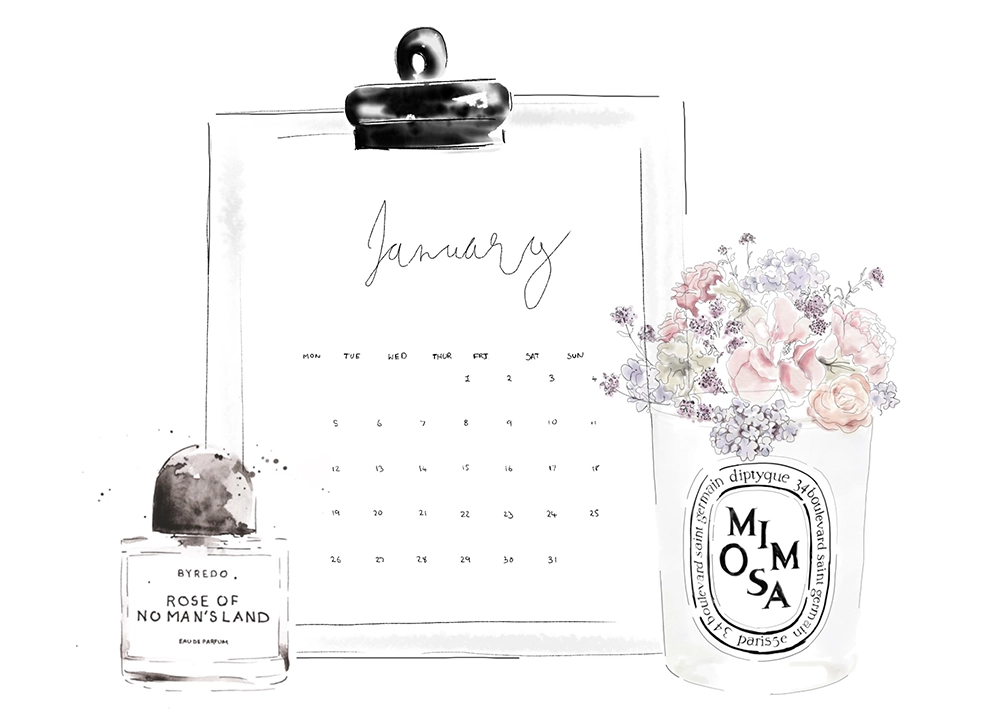 January
MON TUE WED THUR FRI SAT SUN
1 2 3 4
5 6 7 8 9 10 11
12 13 14 15 16 17 18
19 20 21 22 23 24 25
26 27 28 29 30 31
BYREDO
ROSE OF
NO MAN'S LAND
EAU DE PARFUM
diptyque 34 boulevard saint germain paris5e 34 boulevard saint germain
MIMOSA